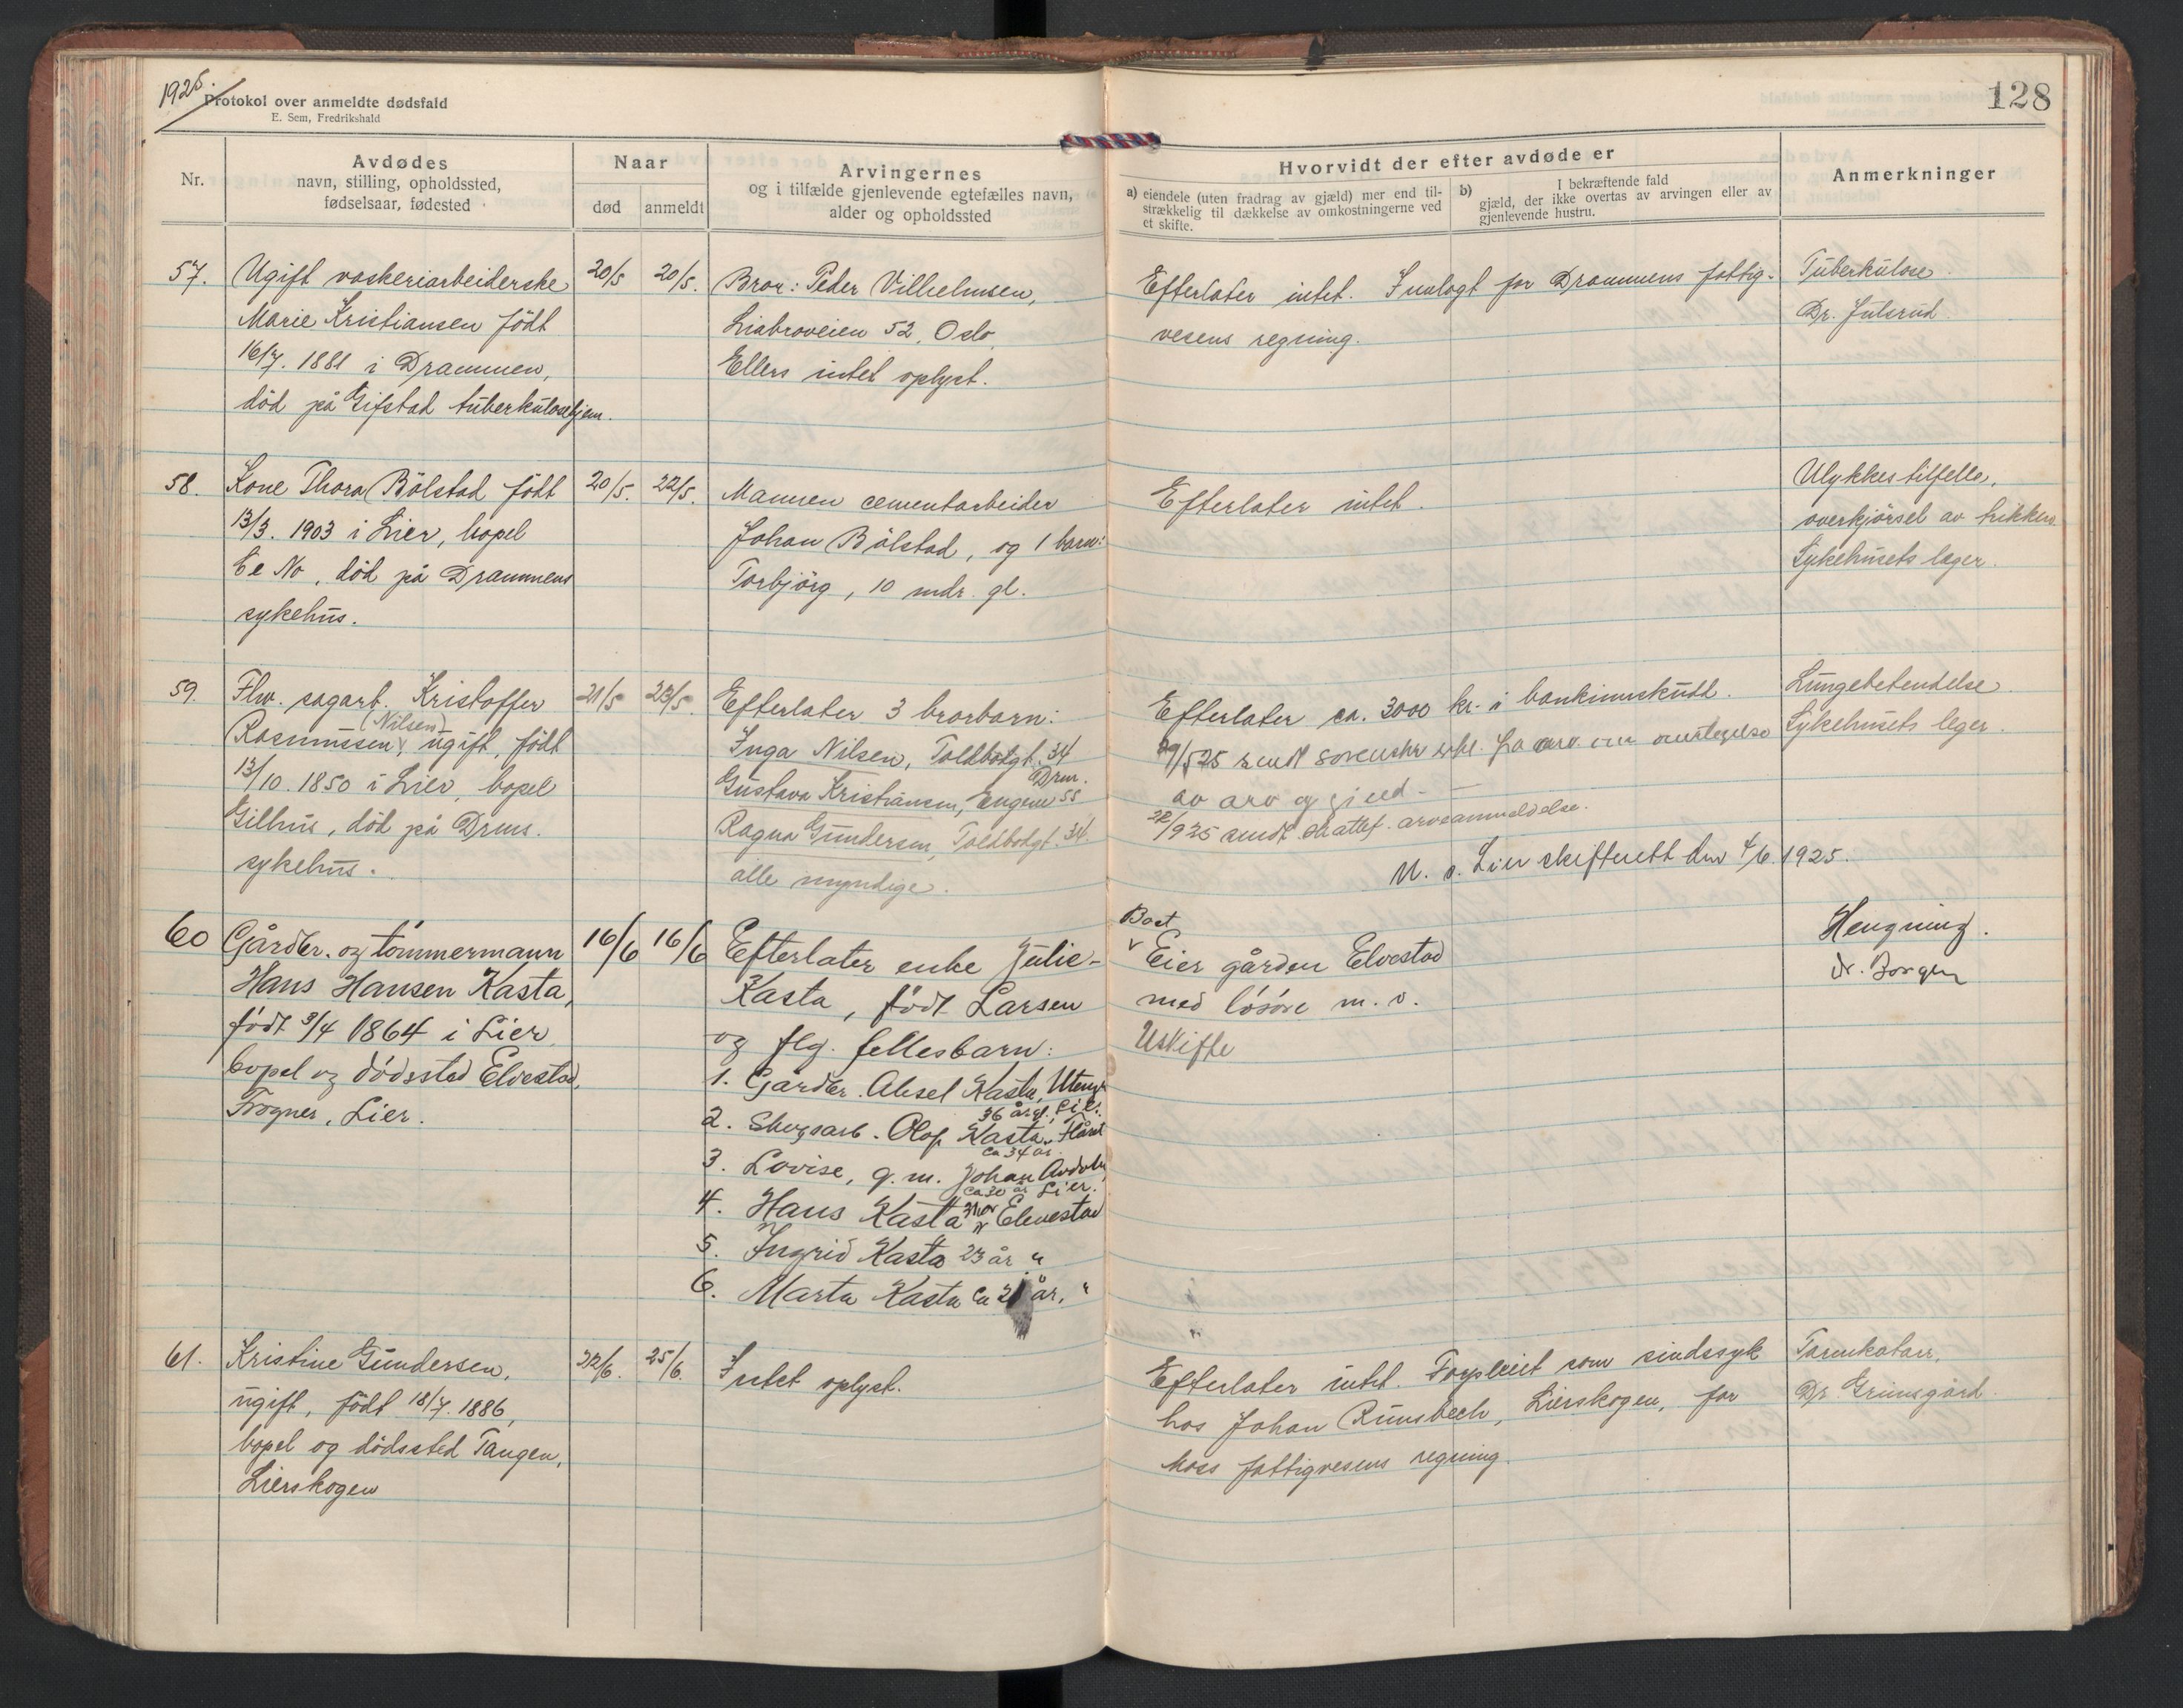 1925.
Protokol over anmeldte dødsfald
E. Sem, Fredrikshald
128
Nr.
Avdødes
navn, stilling, opholdssted,
fødselsaar, fødested
Naar
død
anmeldt
Arvingernes
og i tilfælde gjenlevende egtefælles navn,
alder og opholdssted
Hvorvidt der efter avdøde er
a) eiendele (uten fradrag av gjæld) mer end til-
strækkelig til dækkelse av omkostningerne ved
et skifte.
b) I bekræftende fald
gjæld, der ikke overtas av arvingen eller av
gjenlevende hustru.
Anmerkninger
57.
Ugift vaskeriarbeiderske
Marie Kristiansen født
16/7. 1881 i Drammen,
død på Gifstad tuberkulosehjem.
20/5
20/5.
Bror: Peder Vilhelmsen,
Liabroveien 52, Oslo.
Ellers intet oplyst.
Efterlater intet. Innlagt for Drammens fattig-
vesens regning.
Tuberkulose.
Dr. Julsrud.
58.
Kone Thora Bölstad født
13/3. 1903 i Lier, bopel
død på Drammens
sykehus.
20/5.
22/5.
Mannen cementarbeider
Johan Bölstad, og 1 barn:
Torbjörg, 10 mdr. gl.
Efterlater intet.
Ulykkestilfelle,
overkjörsel av trikken
Sykehusets læger.
59.
Fhv. sagarb. Kristoffer
Rasmussen (Nilsen), ugift, født
13/10. 1850 i Lier, bopel
Gilhus, død på Drms.
sykehus.
21/5
23/5.
Efterlater 3 brorbarn:
Inga Nilsen, Toldbodgt. 34
Drm.
Gustava Kristiansen, Engene 55
Ragna Gundersen, Toldbodgt. 34.
alle myndige.
Efterlater ca. 3000 kr. i bankinnskudd.
29/5 25 sendt sorenskr. erkl. fra arv. om overtagelse
av arv og gjeld.
22/9 25 sendt skattef. arveanmeldelse.
N. s. Lier skifterett den 4/6. 1925.
Lungebetendelse.
Sykehusets leger.
60
Gårdbr. og tömmermann
Hans Hansen Kasta,
født 3/4 1864 i Lier,
bopel og dödssted Elvestad,
Frogner, Lier.
16/6
16/6
Efterlater enke Julie
Kasta, født Larsen
og flg. fellesbarn:
1. Gårdbr. Aksel Kasta,
36 år gl. Lier.
2. Skogsarb. Olaf Kasta,
ca 34 år.
3. Lovise, g. m. Johan
ca 30 år Lier.
4. Hans Kasta Elvestad
5. Ingrid Kasta 23 år "
6. Marta Kasta ca 21 år, "
Bost
Eier gården Elvestad
med lösöre m. v.
Uskifte
Hengning.
dr. Borgen
61.
Kristine Gundersen,
ugift, født 18/7. 1886,
bopel og dödssted Tangen,
Lierskogen
22/6.
25/6.
Intet oplyst.
Efterlater intet. Forpleiet som sindssyk
hos Johan Rumsbech, Lierskogen, for
Moss fattigvesens regning.
Tarmkatarr,
Dr. Grimsgård.